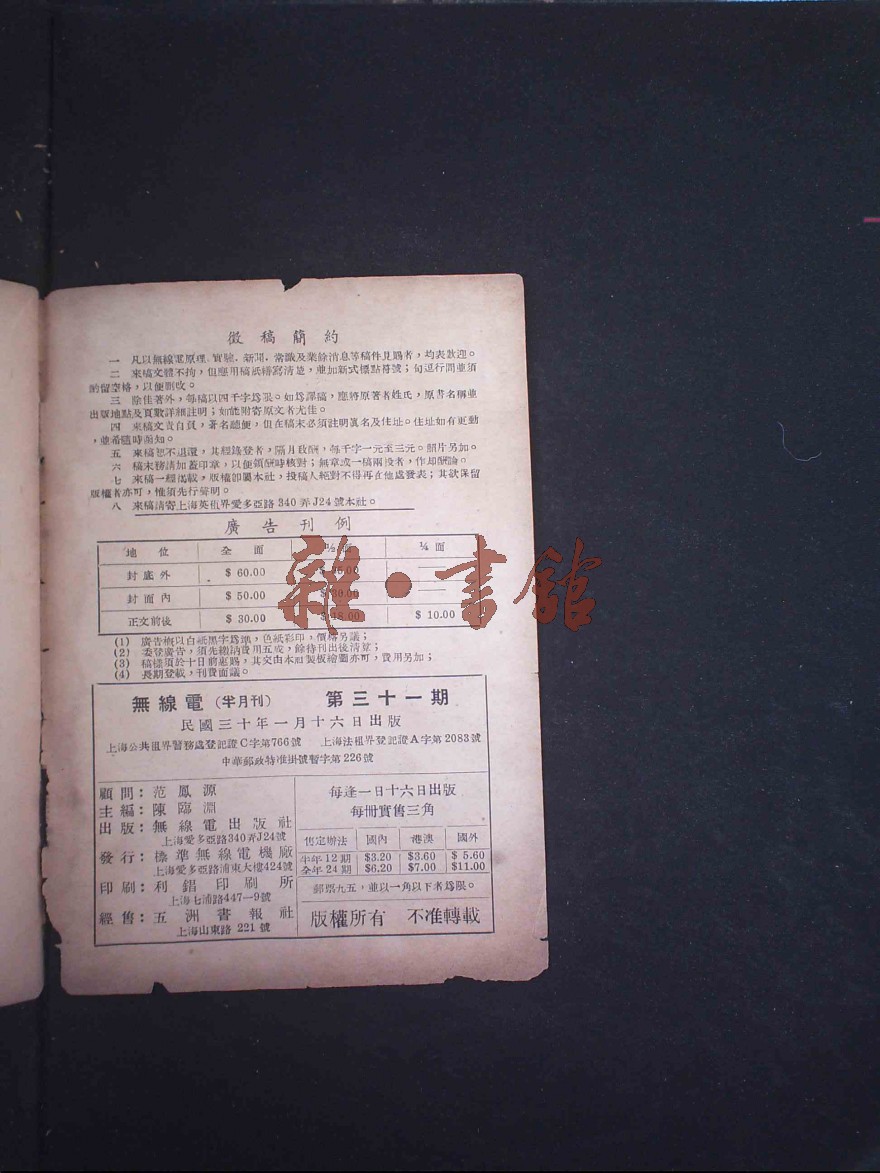 徵稿簡約
一　凡以無線電原理、實驗、新聞、常識及業餘消息等稿件見賜者，均表歡迎。
二　來稿文體不拘，但應用稿紙繕寫清楚，並加新式標點符號；句逗行間並須
酌留空格，以便删改。
三　除佳著外，每稿以四千字爲限。如爲譯稿，應將原著者姓氏，原書名稱並
出版地點及頁數詳細註明；如能附寄原文者尤佳。
四　來稿文責自負，署名聽便，但在稿末必須註明眞名及住址。住址如有更動
，並希隨時函知。
五　來稿恕不退還，其經錄登者，隔月致酬，每千字一元至三元。照片另加。
六　稿末務請加蓋印章，以便領酬時核對；無章或一稿兩投者，作却酬論。
七　來稿一經揭載，版權卽屬本社，投稿人絕對不得再在他處發表；其欲保留
版權者亦可，惟須先行聲明。
八　來稿請寄上海英租界愛多亞路 340 弄 J24 號本社。
廣告刊例
地　位　全　面　½ 面　¼ 面
封底外　$ 60.00
封面內　$ 50.00　$ 30.00
正文前後　$ 30.00　$ 18.00　$ 10.00
雜・書館
(1)　廣告概以白紙黑字爲準，色紙彩印，價格另議；
(2)　委登廣告，須先繳納費用五成，餘待刊出後清算；
(3)　稿樣須於十日前惠賜，其交由本社製板繪圖亦可，費用另加；
(4)　長期登載，刊費面議。
無線電（半月刊）　第三十一期
民國三十年一月十六日出版
上海公共租界警務處登記證 C 字第766號　上海法租界登記證 A 字第 2083號
中華郵政特准掛號暫字第 226 號
顧問：范鳳源
主編：陳臨淵
出版：無線電出版社
上海愛多亞路340弄J24號
發行：標準無線電機廠
上海愛多亞路浦東大樓424號
印刷：利錩印刷所
上海七浦路447—9號
經售：五洲書報社
上海山東路 221 號
每逢一日十六日出版
每冊實售三角
售定辦法　國內　港澳　國外
半年 12 期　$3.20　$3.60　$ 5.60
全年 24 期　$6.20　$7.00　$11.00
郵票九五，並以一角以下者爲限。
版權所有　不准轉載